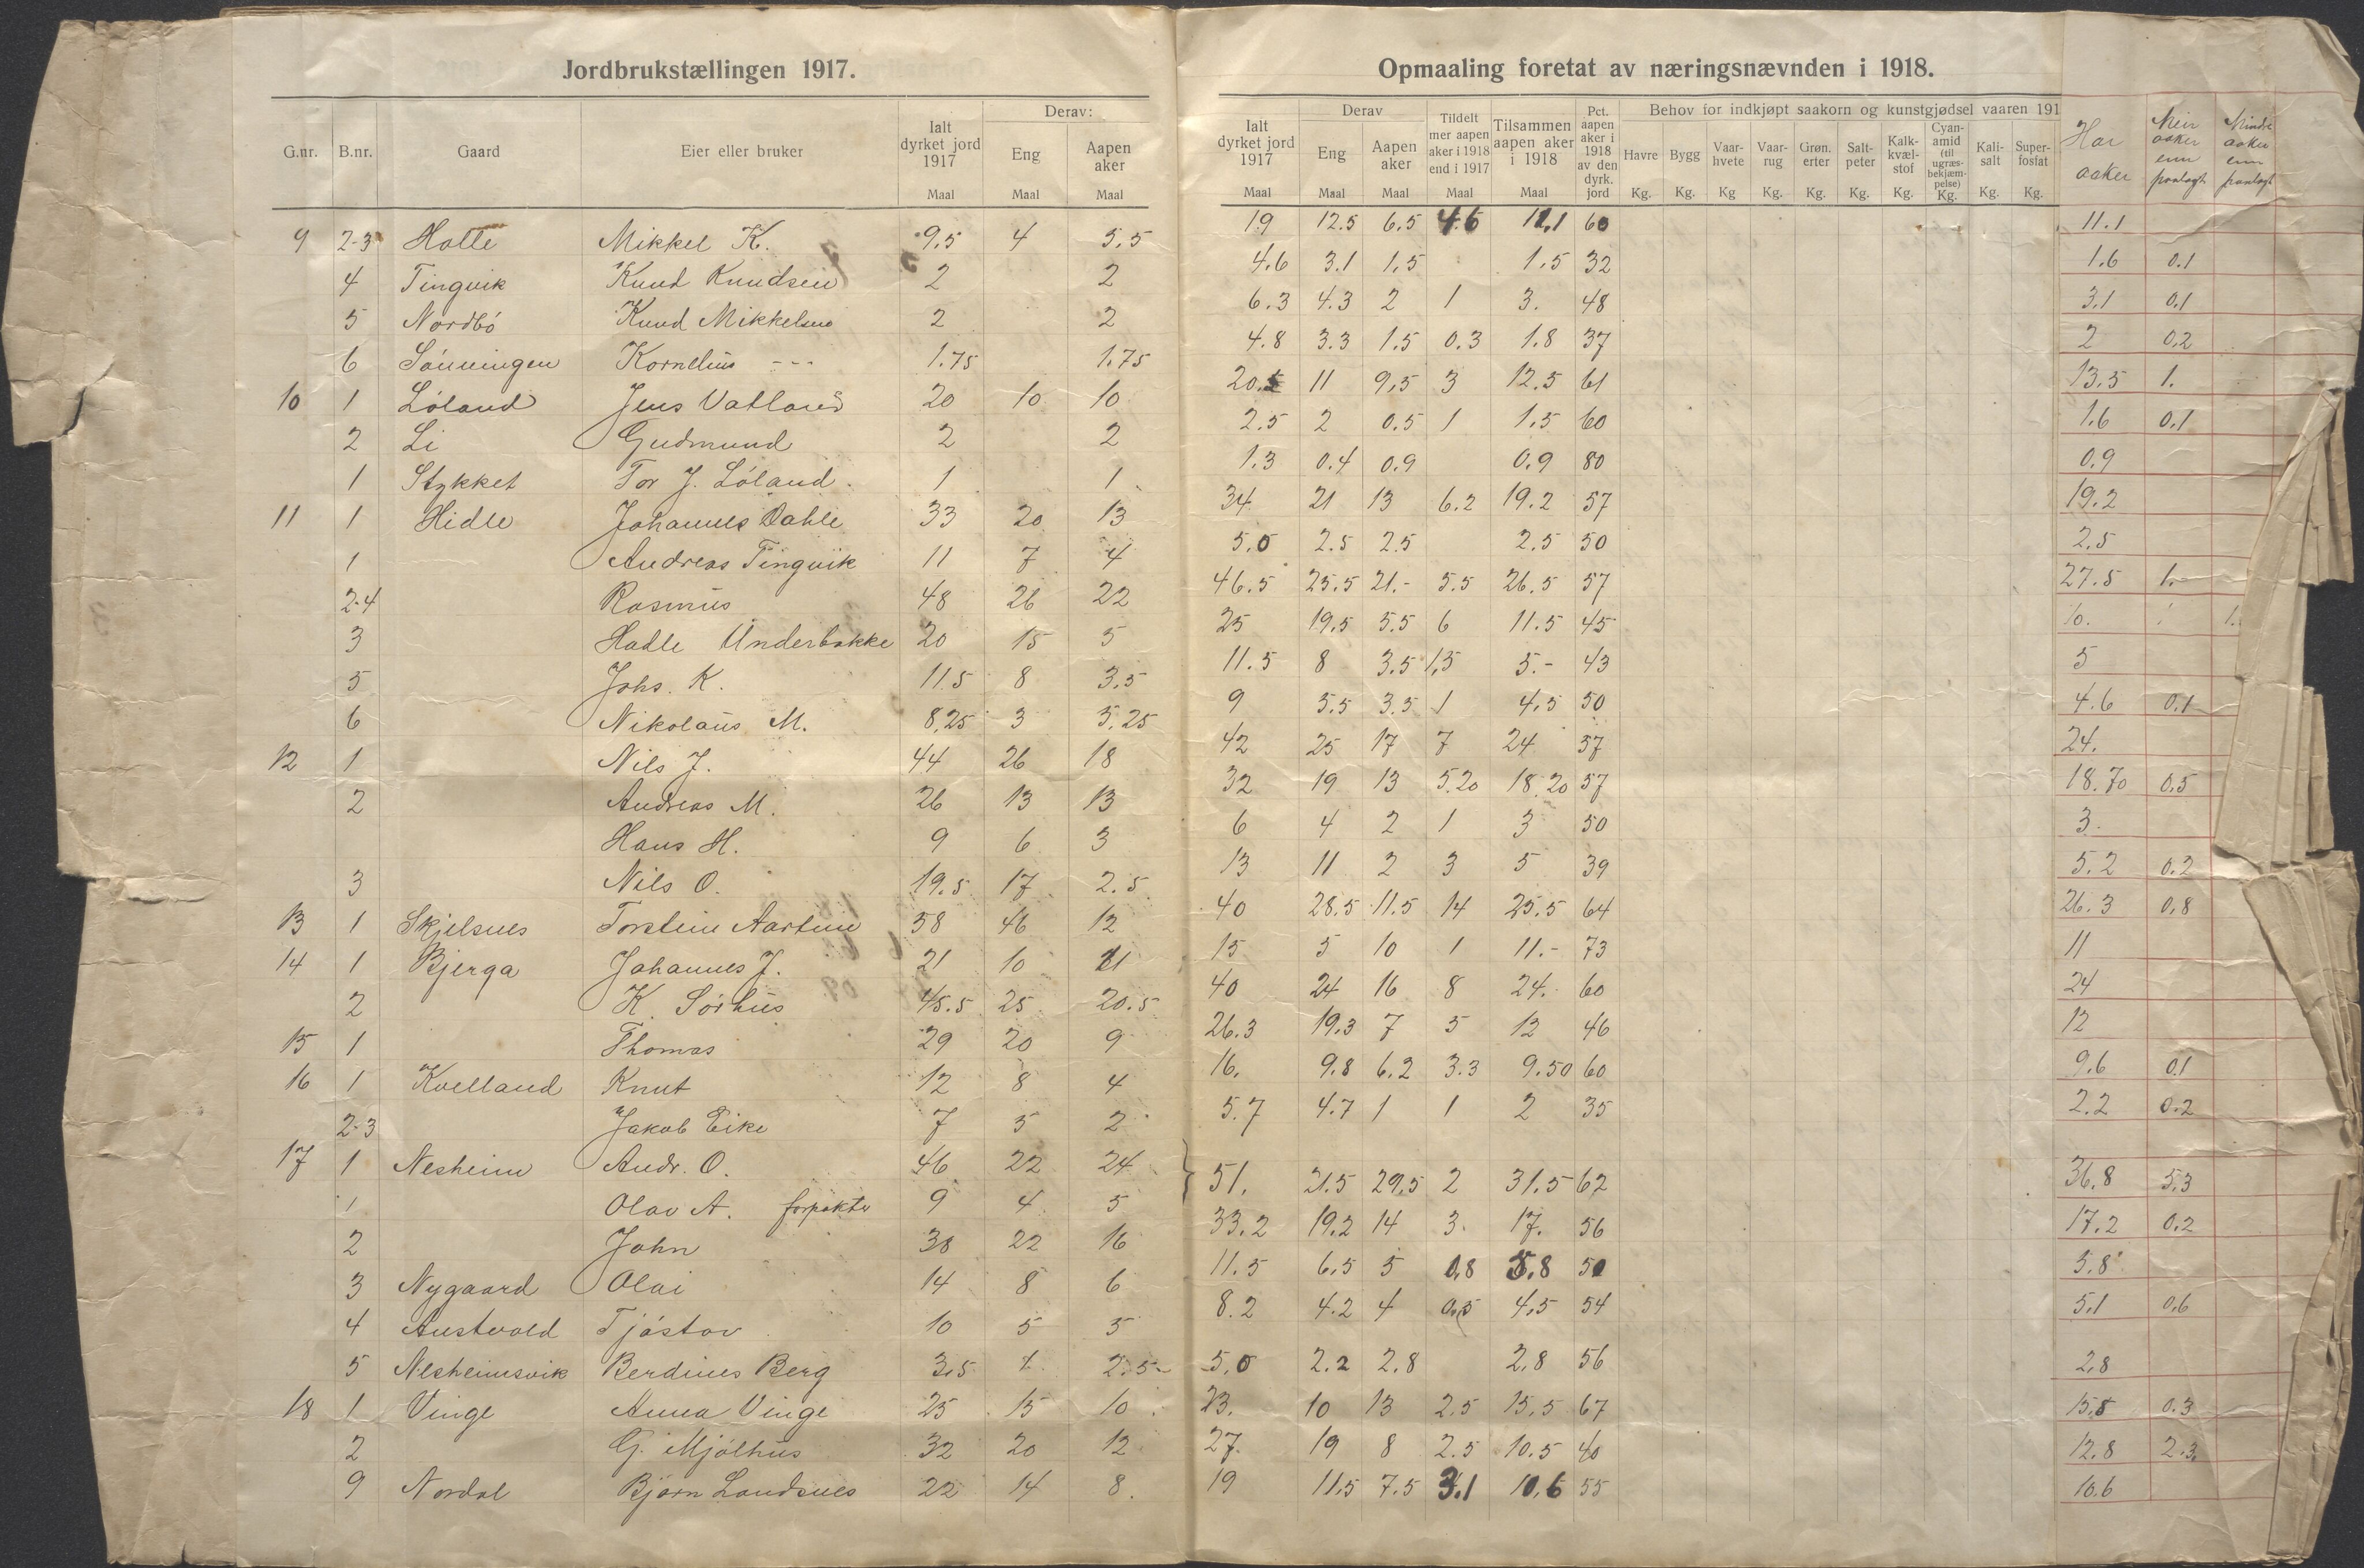 Jordbrukstællingen 1917.
G.nr. B.nr. Gaard Eier eller bruker Ialt dyrket jord 1917 Maal Derav: Eng Maal Aapen aker Maal
9 2-3 Halle Mikkel K. 9.5 4 5,5
4 Tingvik Knud Knudsen 2 2
5 Nordbö Knud Mikkelsen 2 2
6 Sönningen Kornelius - - - 1.75 1.75
10 1 Löland Jens Vatland 20 10 10
2 Li Gudmund 2 2
1 Stykket Tor J. Löland. 1 1
11 1 Hidle Johannes Dahle 33 20 13
1 Andreas Tingvik 11 7 4
2-4 Rasmus 48 26 22
3 Hadle Underbakke 20 15 5
5 Johs. K. 11.5 8 3,5
6 Nikolaus M. 8,25 3 5,25
12 1 Nils J. 44 26 18
2 Andreas M. 26 13 13
Hans H. 9 6 3
3 Nils O. 19.5 17 2.5
13 1 Skjelsnes Torstein Aartun 58 46 12
14 1 Bjerga Johannes J. 21 10 11
2 K. Sörhus 45.5 25 20.5
15 1 Thomas 29 20 9
16 1 Kvelland Knut 12 8 4
2-3 Jakob Eike 7 5 2
17 1 Nesheim Andr. O. 46 22 24
1 Olav A. forpakter 9 4 5
2 John 38 22 16
3 Nygaard Olai 14 8 6
4 Austvold Tjöstov 10 5 5
5 Nesheimsvik Berdines Berg 3,5 1 2.5
18 1 Vinge Anna Vinge 25 15 10
2 G. Mjölhus 32 20 12
9 Nordal Bjørn Landsnes 22 14 8.
Opmaaling foretat av næringsnævnden i 1918.
Ialt dyrket jord 1917 Maal Derav Eng Maal Aapen aker Maal Tildelt mer aapen aker i 1918 end i 1917 Maal Tilsammen aapen aker i 1918 Maal Pct. aapen aker i 1918 av den dyrk. jord Behov for indkjøpt saakorn og kunstgjødsel vaaren 191
Havre Kg. Bygg Kg. Vaar-hvete Kg Vaar-rug Kg. Grøn. erter Kg. Salt-peter Kg. Kalk-kvæl-stof Kg. Cyan-amid (til ugræs-bekjæm-pelse) Kg. Kali-salt Kg. Super-fosfat Kg. Har aaker Meir aaker enn paalagt Mindre aaker enn paalagt
19 12.5 6.5 4.6 11,1 60 11.1
4.6 3.1 1,5 1.5 32 1.6 0.1
6.3 4.3 2 1 3. 48 3.1 0.1
4.8 3.3 1.5 0.3 1.8 37 2 0.2
20.5 11 9,5 3 12.5 61 13.5 1.
2.5 2 0.5 1 1.5 60 1.6 0.1
1.3 0.4 0.9 0.9 80 0.9
34 21 13 6.2 19.2 57 19.2
5,0 2.5 2.5 2.5 50 2,5
46.5 25.5 21.- 5.5 26.5 57 27.5 1.-
25 19.5 5.5 6 11.5 45 10. 1.
11.5 8 3.5 1,5 5.- 43 5
9 5.5 3.5 1 4.5 50 4.6 0.1
42 25 17 7 24 57 24.
32 19 13 5.20 18.20 57 18.70 0,5
6 4 2 1 3 50 3.
13 11 2 3 5 39 5.2 0.2
40 28.5 11.5 14 25.5 64 26.3 0,8
15 5 10 1 11.- 73 11
40 24 16 8 24. 60 24
26.3 19.3 7 5 12 46 12
16. 9.8 6.2 3.3 9.50 60 9.6 0.1
5.7 4.7 1 1 2 35 2.2 0.2
51. 21.5 29.5 2 31.5 62 36.8 5.3
33.2 19.2 14 3. 17. 56 17.2 0.2
11.5 6.5 5 0,8 5.8 50 5.8
8.2 4.2 4 0,5 4.5 54 5.1 0.6
5,0 2.2 2.8 2,8 56 2,8
23. 10 13 2.5 15,5 67 15,8 0.3
27. 19 8 2.5 10.5 40 12.8 2.3
19 11.5 7.5 3.1 10.6 55 10.6